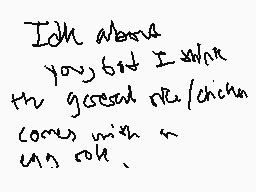 Idk about
you, but I think
the general rice/chicken
comes with an
egg roll.